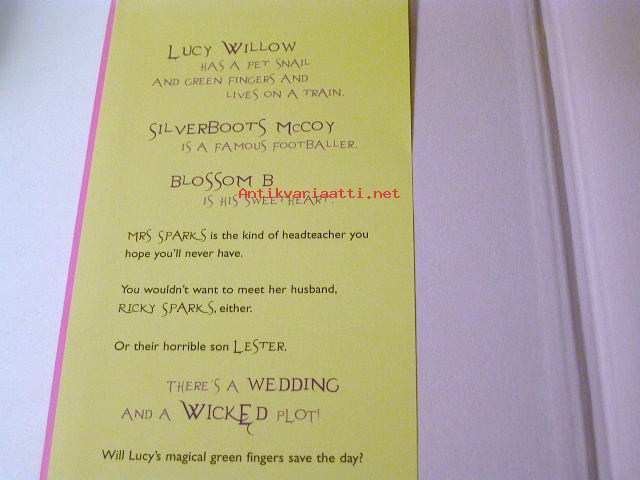 LUCY WILLOW
HAS A PET SNAIL
AND GREEN FINGERS AND
LIVES ON A TRAIN.
SILVERBOOTS McCOY
IS A FAMOUS FOOTBALLER.
BLOSSOM B
Antikvariaatti.net
IS HIS SWEETHEART.
MRS SPARKS is the kind of headteacher you
hope you'll never have.
You wouldn't want to meet her husband,
RICKY SPARKS, either.
Or their horrible son LESTER.
THERE'S A WEDDING
AND A WICKED PLOT!
Will Lucy's magical green fingers save the day?